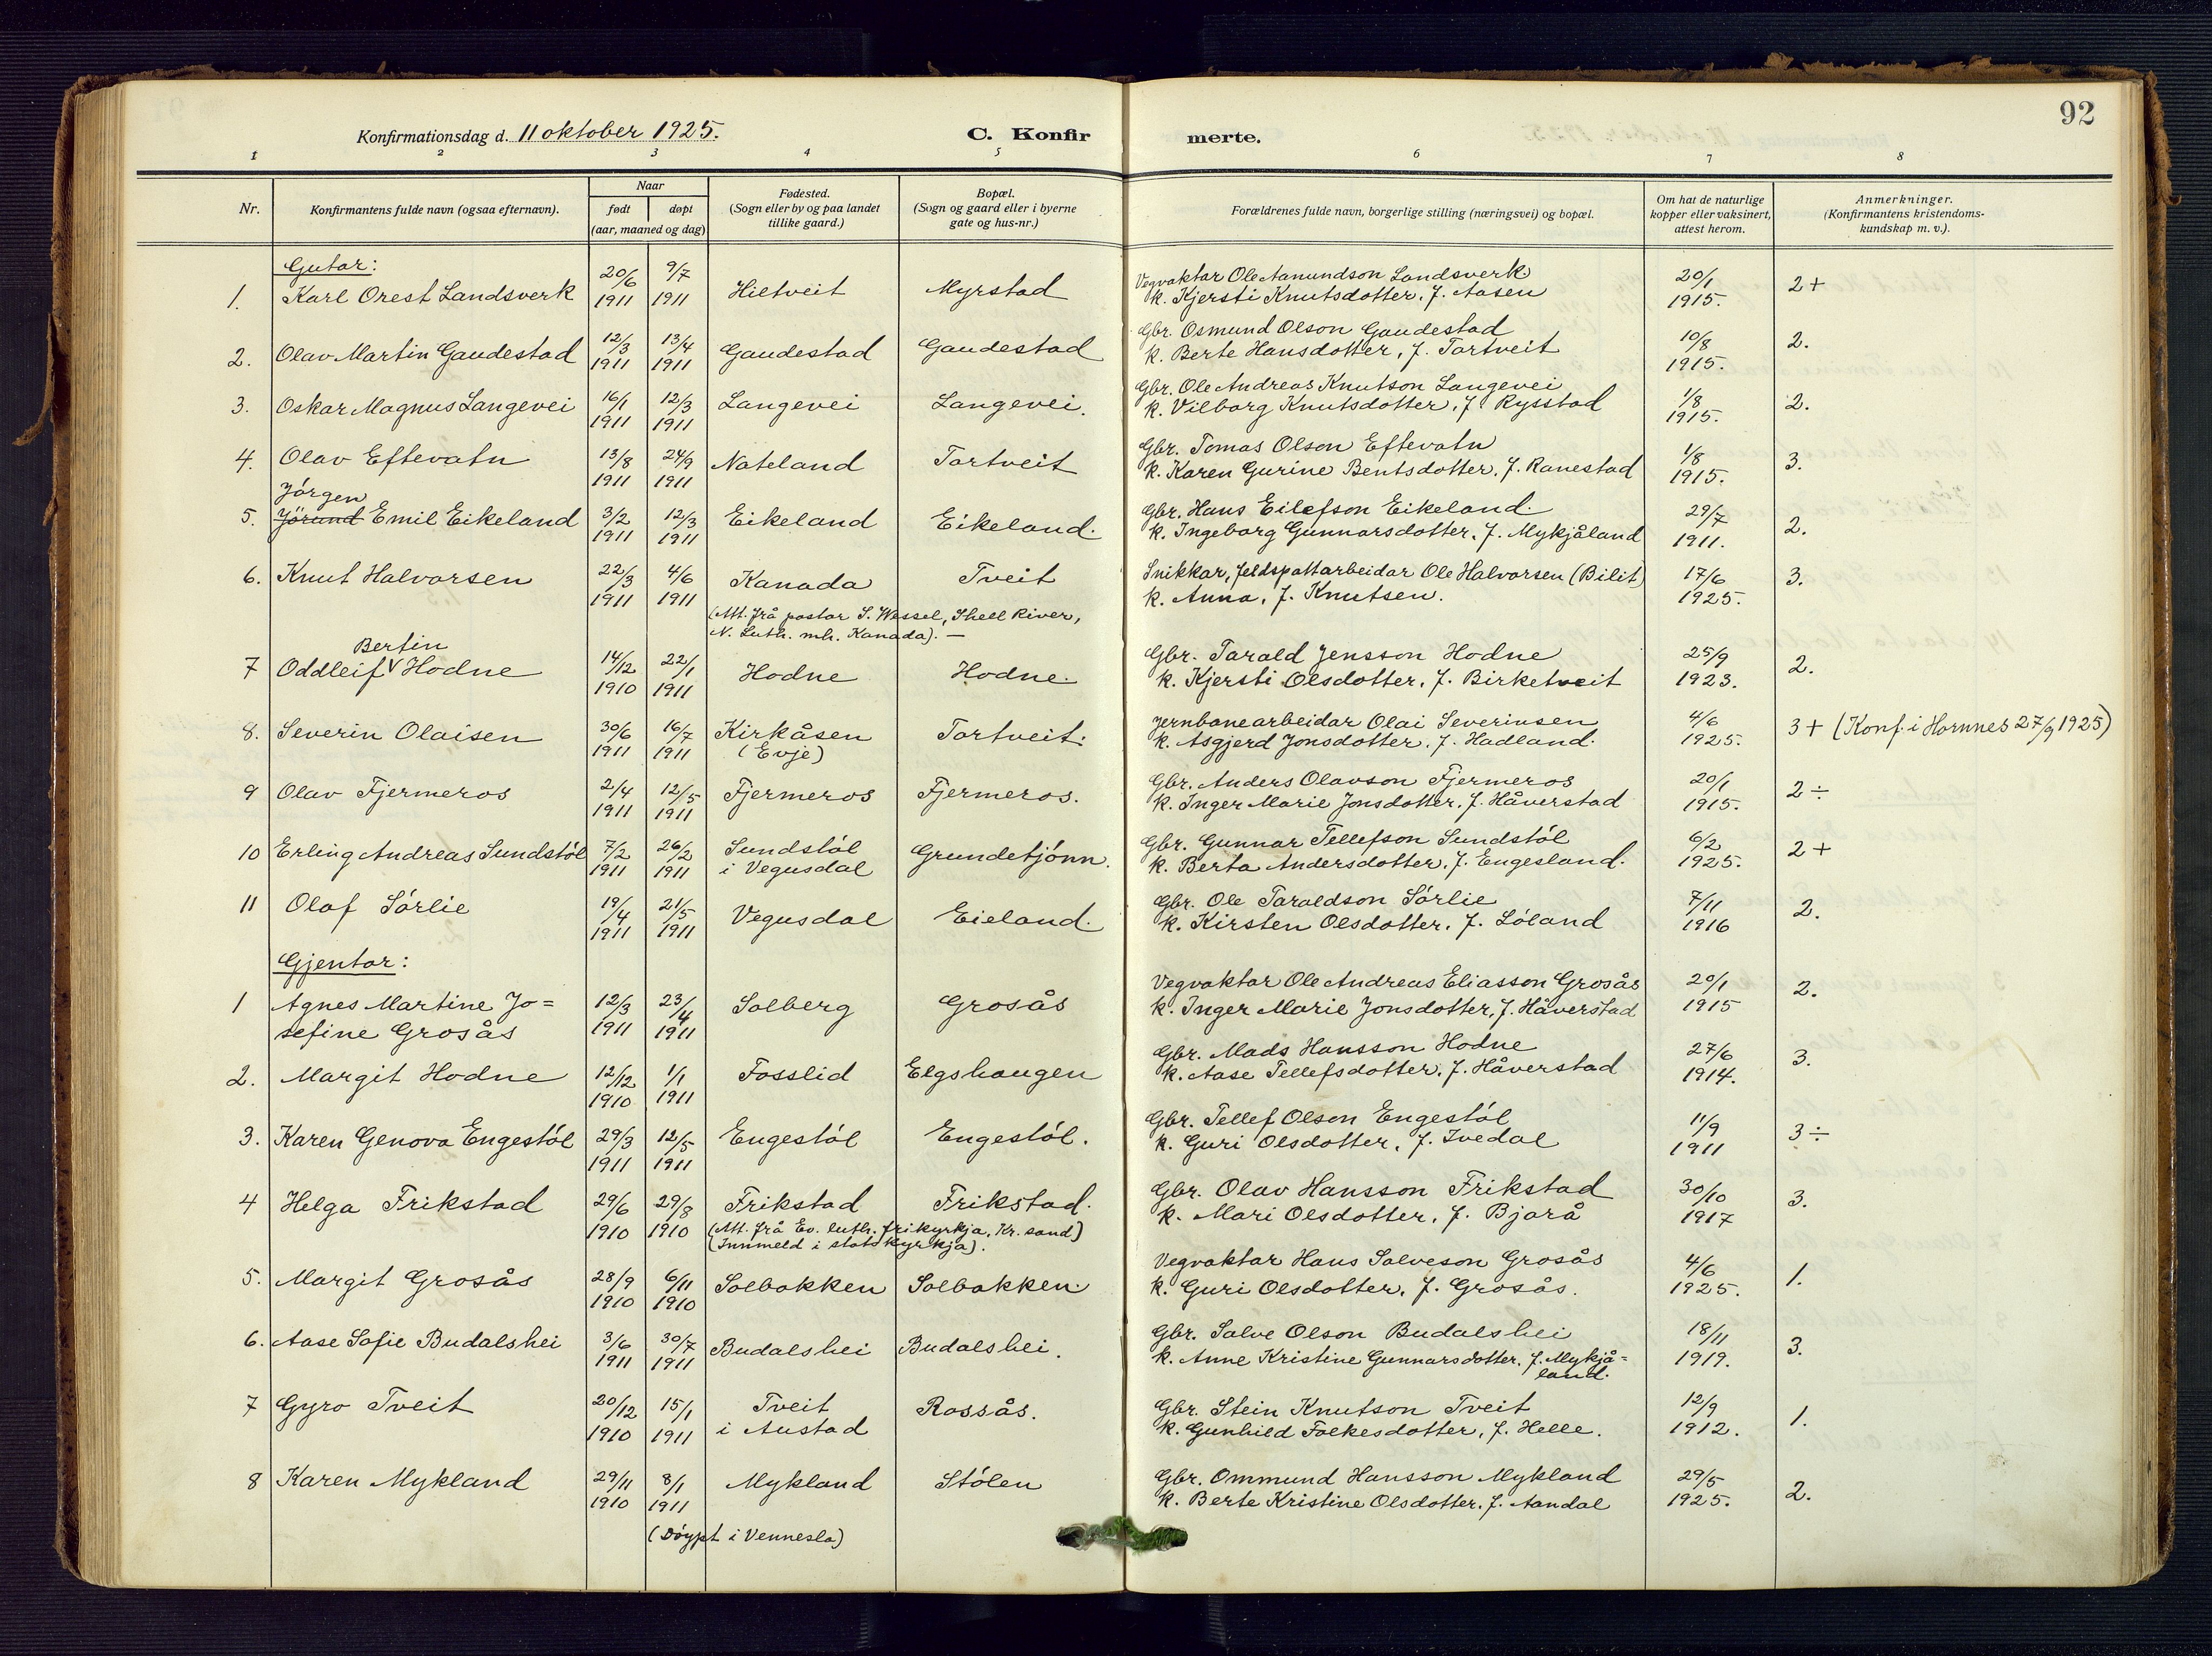 92
Konfirmationsdag d. 11 oktober 1925.
C. Konfirmerte.
1 2 3 4 5 6 7 8
Nr.
Konfirmantens fulde navn (ogsaa efternavn).
Naar
født døpt
(aar, maaned og dag)
Fødested.
(Sogn eller by og paa landet
tillike gaard.)
Bopæl.
(Sogn og gaard eller i byerne
gate og hus-nr.)
Forældrenes fulde navn, borgerlige stilling (næringsvei) og bopæl.
Om hat de naturlige
kopper eller vaksinert,
attest herom.
Anmerkninger.
(Konfirmantens kristendoms-
kundskap m. v.).
Gutar:
1. Karl Orest Landsverk 20/6 1911 9/7 1911 Hiltveit Myrstad
Vegvaktar Ole Aanundson Landsverk
k. Kjersti Knutsdotter, f. Aasen 20/1 1915. 2+
2. Olav Martin Gaudestad 12/3 1911 13/4 1911 Gaudestad Gaudestad
Gbr. Osmund Olson Gaudestad
k. Berte Hansdotter, f. Tortveit 10/8 1915. 2.
3. Oskar Magnus Langevei 16/1 1911 12/3 1911 Langevei Langevei.
Gbr. Ole Andreas Knutson Langevei
k. Vilborg Knutsdotter, f. Rysstad 1/8 1915. 2.
4. Olav Eftevatn 13/8 1911 24/9 1911 Nateland Tortveit
Gbr. Tomas Olson Eftevatn
k. Karen Gurine Bentsdotter, f. Ranestad 1/8 1915. 3.
Jörgen
5. Jörund Emil Eikeland 3/2 1911 12/3 1911 Eikeland Eikeland.
Gbr. Hans Eilefson Eikeland.
k. Ingeborg Gunnarsdotter, f. Mykjåland 29/7 1911. 2.
6. Knut Halvorsen 22/3 1911 4/6 1911 Kanada Tveit
(Att. frå pastor S. Wessel, Shell River,
N. Luth. mh. Kanada). —
Snikkar, feldspattarbeidar Ole Halvorsen (Bilit)
k. Anna, f. Knutsen. 17/6 1925. 3.
Bertin
7 Oddleif V Hodne 14/12 1910 22/1 1911 Hodne Hodne.
Gbr. Tarald Jensson Hodne
k. Kjersti Olsdotter, f. Birketveit 25/9 1923. 2.
8. Severin Olaisen 30/6 1911 16/7 1911 Kirkåsen (Evje) Tortveit.
Jernbanearbeidar Olai Severinsen
k. Asgjerd Jonsdotter, f. Hadland. 4/6 1925. 3+ (Konf. i Hornnes 27/9 1925)
9 Olav Fjermeros 2/4 1911 12/5 1911 Fjermeros Fjermeros.
Gbr. Anders Olavson Fjermeros
k. Inger Marie Jonsdotter, f. Håverstad 20/1 1915. 2÷
10 Erling Andreas Sundstöl 7/2 1911 26/2 1911 Sundstöl i Vegusdal Grundetjönn.
Gbr. Gunnar Tellefson Sundstöl
k. Berta Andersdotter, f. Engesland. 6/2 1925. 2+
11 Olaf Sörlie 19/4 1911 21/5 1911 Vegusdal Eieland.
Gbr. Ole Taraldson Sörlie
k. Kirsten Olsdotter, f. Löland 7/11 1916 2.
Gjentor:
1 Agnes Martine Jo=
sefine Grosås 12/3 1911 23/4 1911 Solberg Grosås
Vegvaktar Ole Andreas Eliasson Grosås
k. Inger Marie Jonsdotter, f. Håverstad 20/1 1915 2.
2. Margit Hodne 12/12 1910 1/1 1911 Fosslid Elgshaugen
Gbr. Mads Hansson Hodne
k. Aase Tellefsdotter, f. Håverstad 27/6 1914. 3.
3. Karen Genova Engestöl 29/3 1911 12/5 1911 Engestöl Engestöl.
Gbr. Tellef Olson Engestöl
k. Guri Olsdotter, f. Ivedal 11/9 1911 3÷
4 Helga Frikstad 29/6 1910 29/8 1910 Frikstad Frikstad.
(Att. frå Ev. luth. frikyrkja, Kr. sand)
(Innmeld i statskyrkja).
Gbr. Olav Hansson Frikstad
k. Mari Olsdotter, f. Bjorå 30/10 1917 3.
5. Margit Grosås 28/9 1910 6/11 1910 Solbakken Solbakken.
Vegvaktar Hans Salveson Grosås
k. Guri Olsdotter, f. Grosås. 4/6 1925. 1.
6. Aase Sofie Budalshei 3/6 1911 30/7 1911 Budalshei Budalshei.
Gbr. Salve Olson Budalshei
k. Anne Kristine Gunnarsdotter, f. Mykjå=
land. 18/11 1919. 3.
7 Gyro Tveit 20/12 1910 15/1 1911 Tveit i Austad Rossås.
Gbr. Stein Knutson Tveit
k. Gunhild Folkesdotter, f. Helle. 12/9 1912. 1.
8 Karen Mykland 29/11 1910 8/1 1911 Mykland Stölen
(Döypt i Vennesla)
Gbr. Ommund Hansson Mykland
k. Berte Kristine Olsdotter, f. Aandal 29/5 1925. 2.